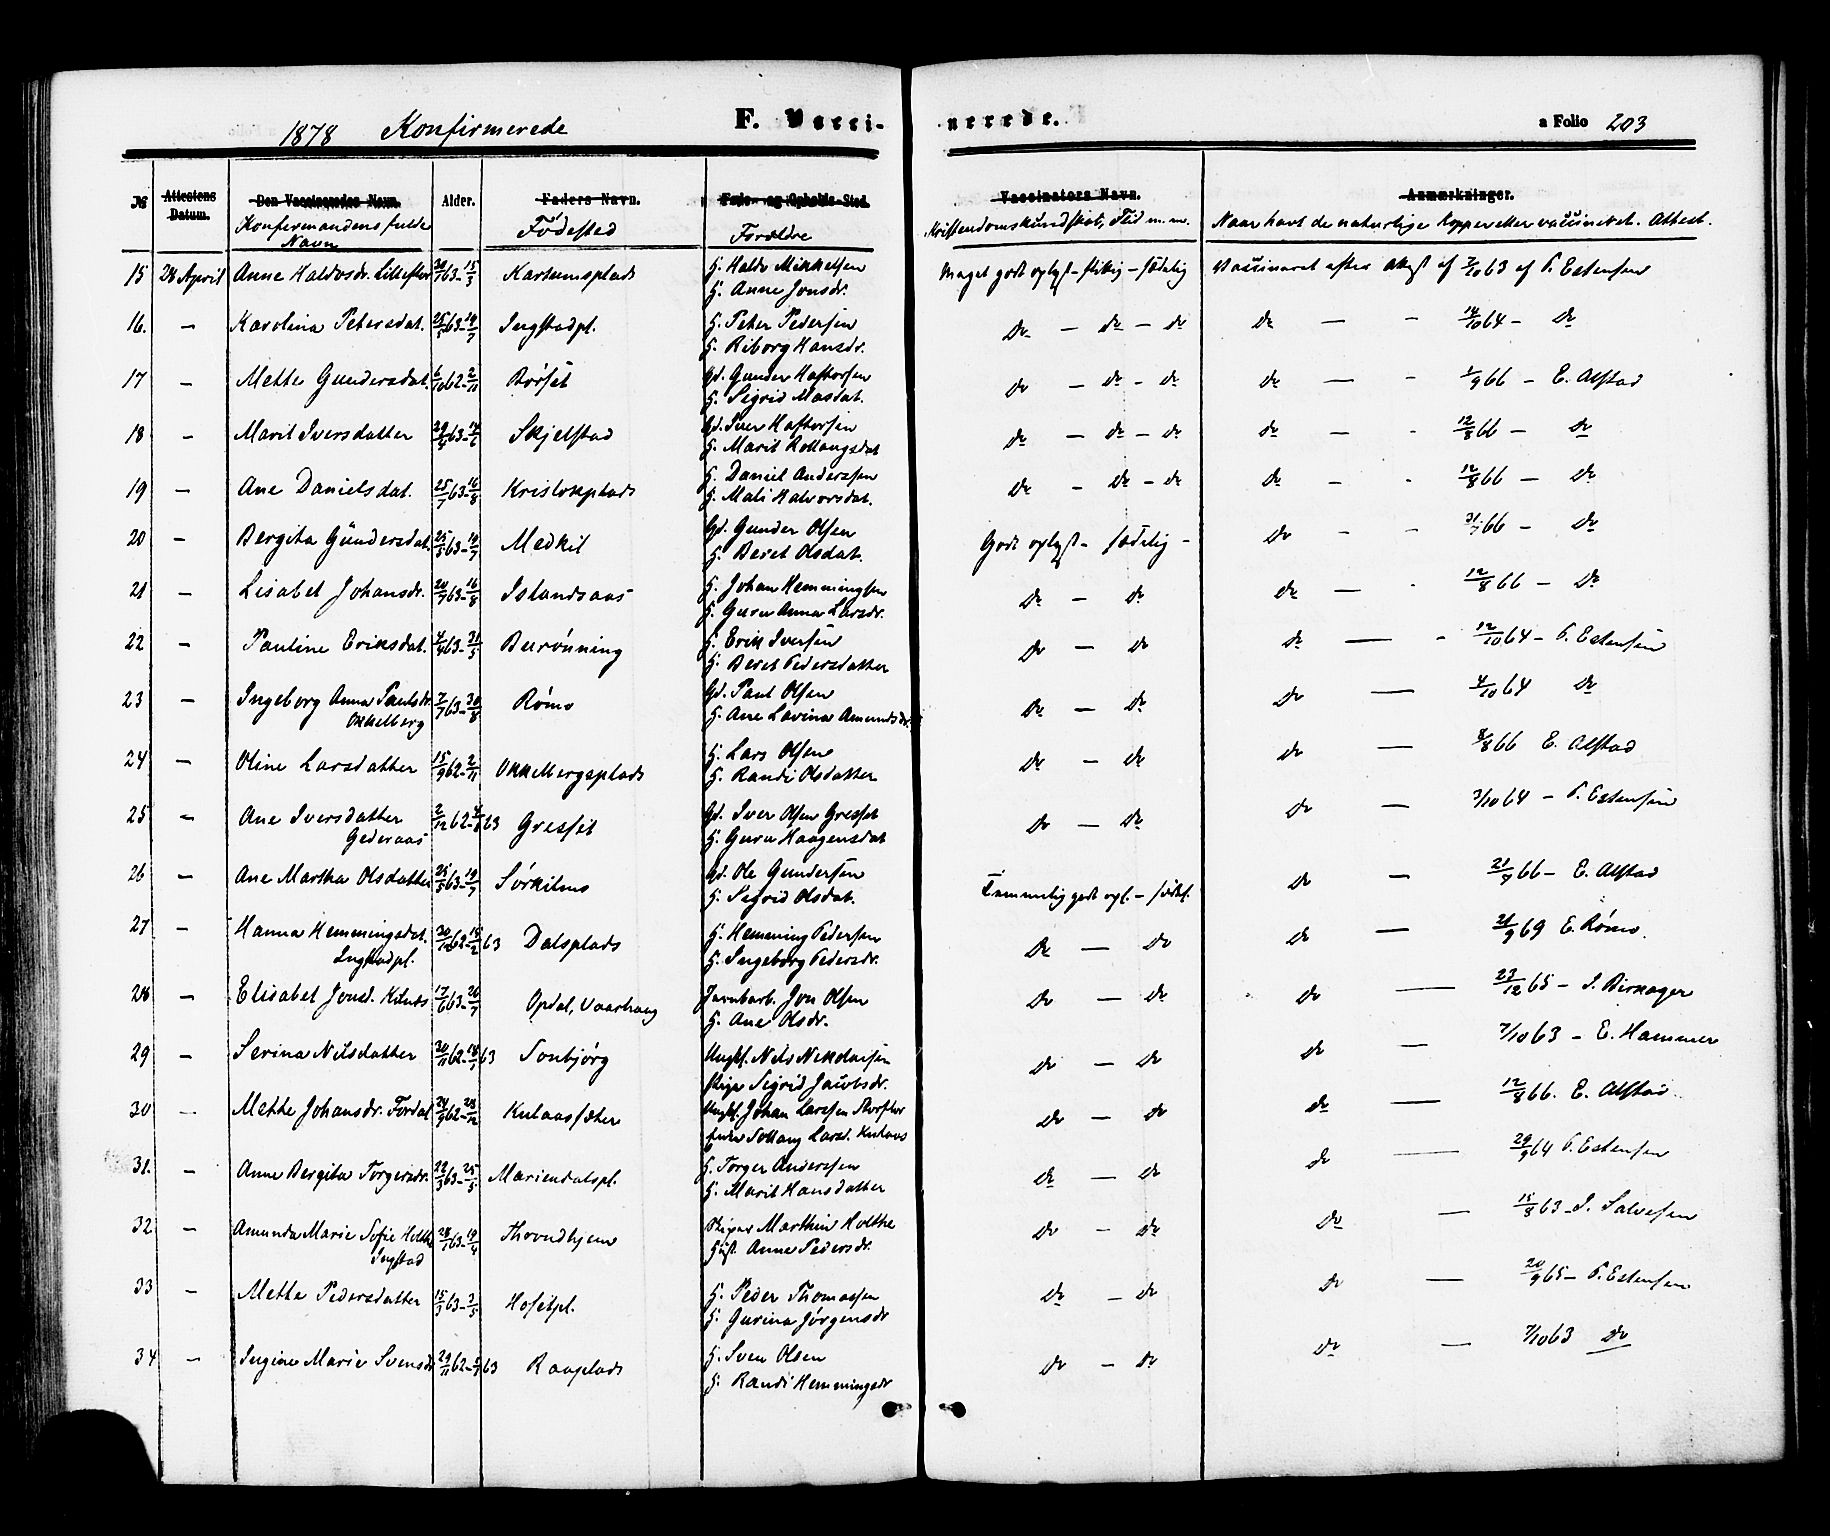 1878 Konfirmerede F. Vacci- nerede. a Folio 203
№ Attestens Datum. Den Vaccineredes Navn. Alder. Faders Navn. Føde- og Opholds-Sted. Vaccinators Navn. Anmærkninger.
Konfirmandens fulde Navn Fødested Forældre Kristendomskundskab, Flid m.m. Naar havt de naturlige Kopper eller vaccineret. Attest.
15 28 April Anne Haldosdr. 63 - 15/5 H. Haldo Mikkelsen Meget godt oplyst - flittig - sædelig Vaccineret efter Attest af 7/10 63 af P. Estensen
H. Anne Jonsdr.
16. - Karolina Petersdat. 25/5 63 - 19/7 Ingstadpl. H. Peter Pedersen Do - do - do do - - 14/10 64 - Do
H. Riborg Hansdr.
17 - Mette Gundersdat. 6/10 62 - 2/11 Børset Gd. Gunder Haftorsen do - do - do do - - 1/9 66 - E. Alstad
H. Sigrid Masdat.
18 - Marit Iversdatter 29/4 63 - 14/6 Skjelstad Gd. Iver Haftorsen do - do - do do - - 12/8 66 - do
H. Marit Kollangsdat
19 - Ane Danielsdat. 25/7 63 - 16/8 H. Daniel Anderssen do - do - do do - - 12/8 66 - Do
H. Mali Halvorsdat.
20 - Bergita Gundersdat. 25/5 63 - 19/7 Medkil Gd. Gunder Olsen Godt oplyst - sædelig - do - - 31/7 66 - Do
H. Beret Olsdat.
21 - Lisabet Johansdr. 20/7 63 - 16/8 Islandsaas H. Johan Hemmingsen do - do do - - 12/8 66 - Do
H. Guru Anna Larsdr.
22 - Pauline Eriksdat. 4/4 63 - 31/5 Burønning H. Erik Iversen do - do do - - 12/10 64 - P. Estensen
H. Beret Pedersdatter
23 - Ingeborg Anna Paulsdr. 7/7 63 - 30/8 Rømo Gd. Paul Olsen do - do do - 4/10 64 do
Okkelberg H. Ane Lovina Amundsdr.
24 - Oline Larsdatter 15/9 62 - 2/11 Okkelbergsplads H. Lars Olsen do - do do - 8/8 66 E. Alstad
H. Randi Olsdatter
25 - Ane Iversdatter 2/12 62 - 63 Gresset Gd. Iver Olsen Gresset do - do do - 3/10 64 - P. Estensen
Gederaas H. Guru Haagensdat
26 - Ane Martha Olsdatter 25/5 63 - 19/7 Sørkilmo Gd. Ole Gundersen Temmelig godt opl. - sædel. do - 21/7 66 - E. Alstad
H. Sigrid Olsdat.
27 - Hanna Hemmingsdat. 20/12 62 - 15/2 63 Dalsplads H. Hemming Pedersen do - do do - 21/9 69 E. Rømo.
Ingstadpl. H. Ingeborg Pedersdr.
28 - Elisabet Jonsd. Kilnes 17/6 63 - 26/7 Opdal, Vaarhaug Jernbarb. Jon Olsen do - do do - 23/12 65 - J. Birkager
H. Ane Olsdr.
29 - Serina Nilsdatter 20/11 62 - 18/1 63 Sonbjørg Ungkl. Nils Nikolaisen do - do do - 7/10 63 - E. Hammer
Pige Sigrid Jacobsdr.
30 - Mette Johansdr. Fordal 24/9 62 - 28/12 Kulaassæter Ungkl. Johan Larssen do - do do - 12/8 66. E. Alstad.
Enke Sollaug Larsd. Kulaas
31. - Anne Bergita Torgersdr. 22/3 63 - 25/5 Mariendalspl. H. Torger Anderssen do - do do - 29/9 64 P. Estensen
H. Marit Hansdatter
32 - Amunda Marie Sofie Holthe 28/1 63 - 19/4 Throndhjem Marthin Holthe do - do do - 15/8 63 - J. Salvesen
Ingstad Hust. Anne Pedersdr.
33 - Mette Pedersdatter 15/3 63 - 3/5 Hofstpl. H. Peder Thomassen do - do do - 20/9 65 - P. Estensen
H. Gurina Jørgensdr
34 - Ingine Marie Svensdr. 29/11 62 - 63 Raaplads H. Sven Olsen do - do do - 7/10 63 do
H. Randi Hemmingsdr